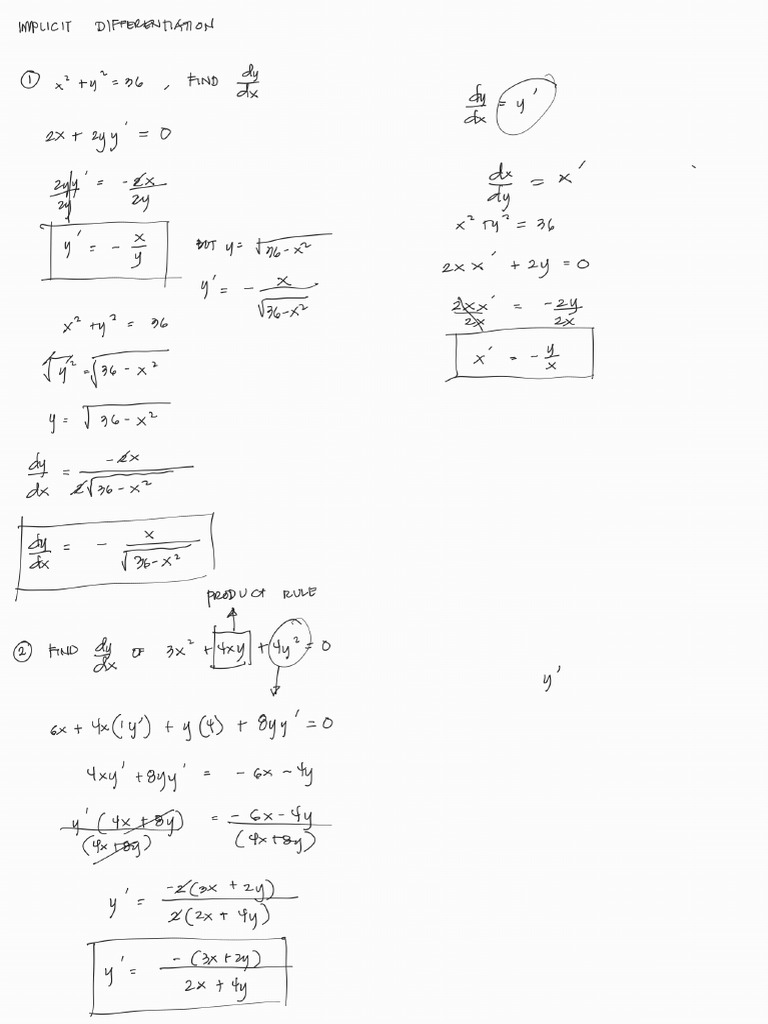 IMPLICIT DIFFERENTIATION
① x² + y² = 36 , FIND dy/dx
2x + 2yy' = 0
2yy'/2y = -2x/2y
y' = - x/y
BUT y = √(36-x²)
y' = - x/√(36-x²)
x² + y² = 36
√y² = √(36 - x²)
y = √(36 - x²)
dy/dx = -2x/2√(36-x²)
dy/dx = - x/√(36-x²)
dy/dx = y'
dx/dy = x'
x² + y² = 36
2xx' + 2y = 0
2xx'/2x = -2y/2x
x' = - y/x
PRODUCT RULE
② FIND dy/dx OF 3x² + 4xy + 4y² = 0
6x + 4x(1y') + y(4) + 8yy' = 0
4xy' + 8yy' = - 6x - 4y
y'(4x + 8y)/(4x+8y) = - 6x - 4y/(4x+8y)
y' = -2(3x + 2y)/2(2x + 4y)
y' = - (3x+2y)/2x + 4y
y'